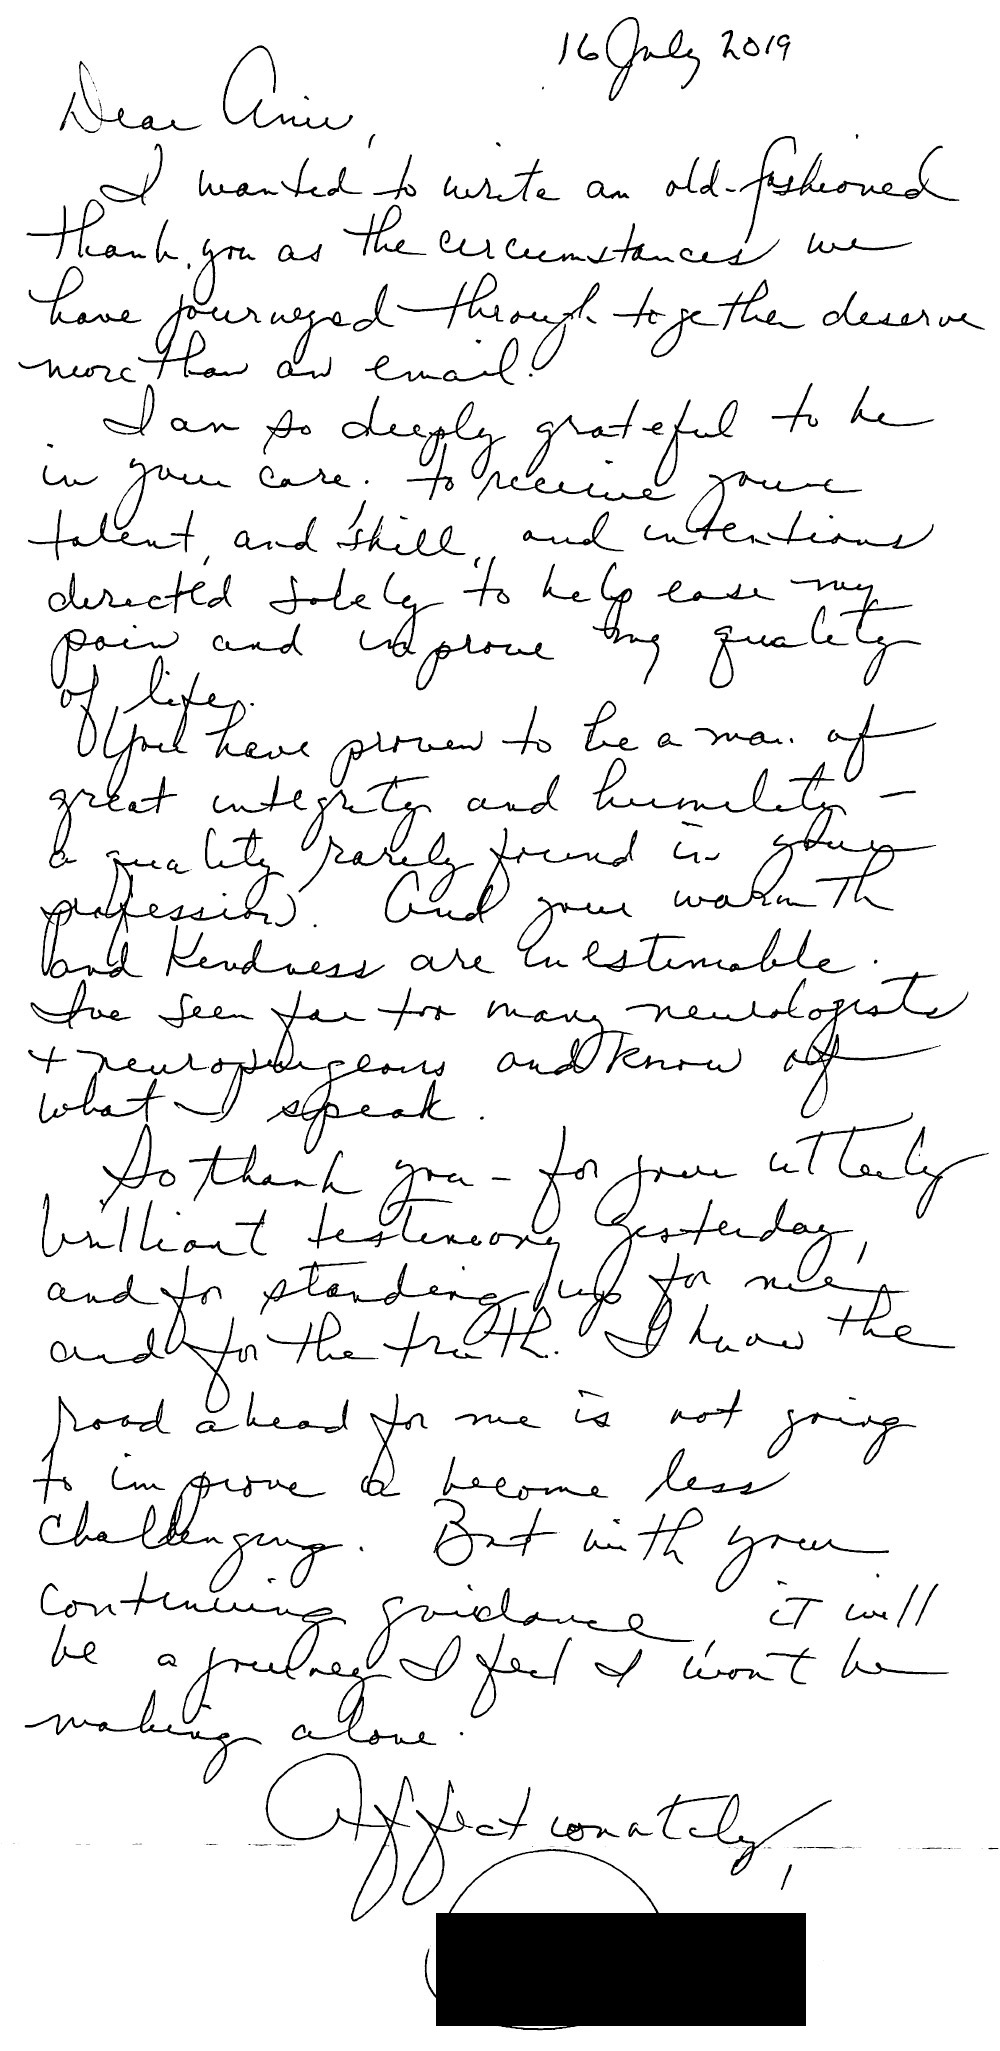 16 July 2019
Dear Amir,
I wanted to write an old-fashioned
thank you as the circumstances we
have journeyed through together deserve
more than an email.
I am so deeply grateful to be
in your care; to receive your
talent, and skill, and intentions
directed solely to help ease my
pain and improve my quality
of life.
You have proven to be a man of
great integrity and humility –
a quality rarely found in your
profession. And your warmth
and kindness are inestimable.
I've seen far too many neurologists
+ neurosurgeons and know of
what I speak.
So thank you – for your utterly
brilliant testimony yesterday,
and for standing up for me,
and for the truth. I know the
road ahead for me is not going
to improve or become less
challenging. But with your
continuing guidance, it will
be a journey I feel I won't be
making alone.
Affectionately,